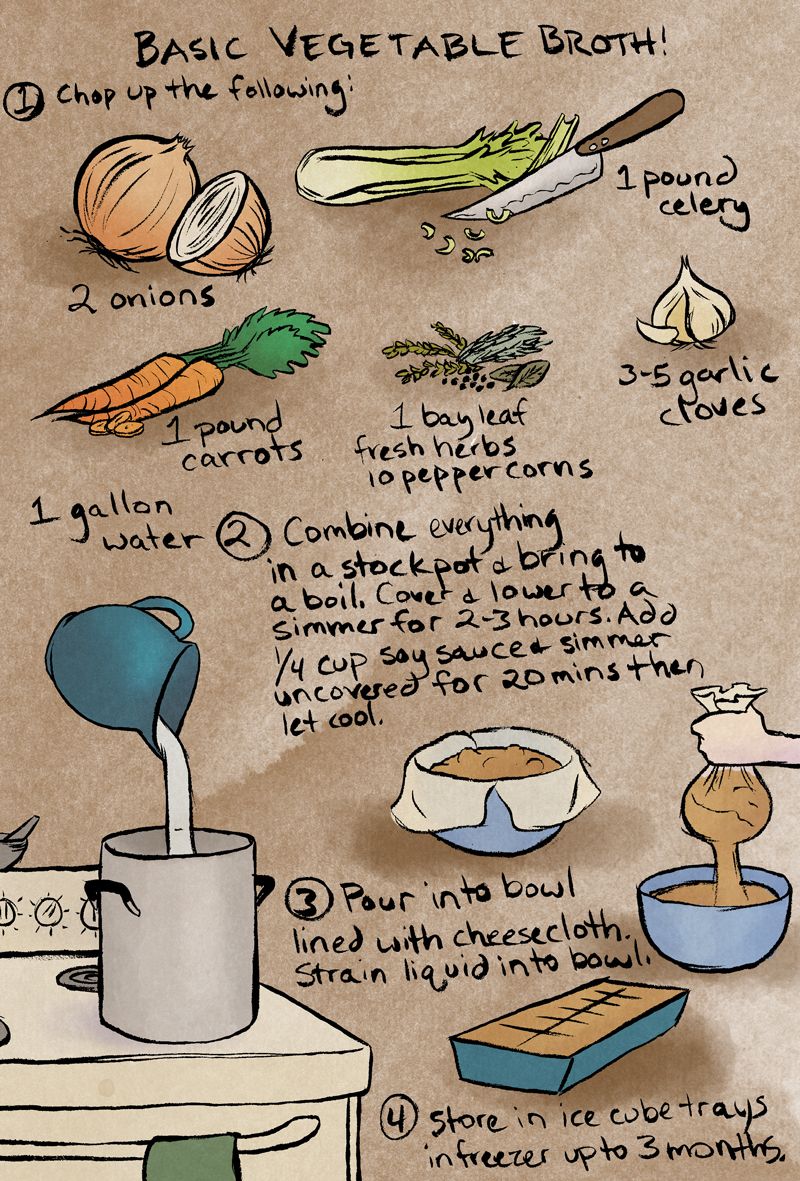 BASIC VEGETABLE BROTH!
① Chop up the following:
1 pound
celery
2 onions
3-5 garlic
cloves
1 pound
carrots
1 bay leaf
fresh herbs
10 peppercorns
1 gallon
water
② Combine everything
in a stockpot & bring to
a boil. Cover & lower to a
simmer for 2-3 hours. Add
1/4 cup soy sauce & simmer
uncovered for 20 mins then
let cool.
③ Pour into bowl
lined with cheesecloth.
Strain liquid into bowl.
④ Store in ice cube trays
in freezer up to 3 months.